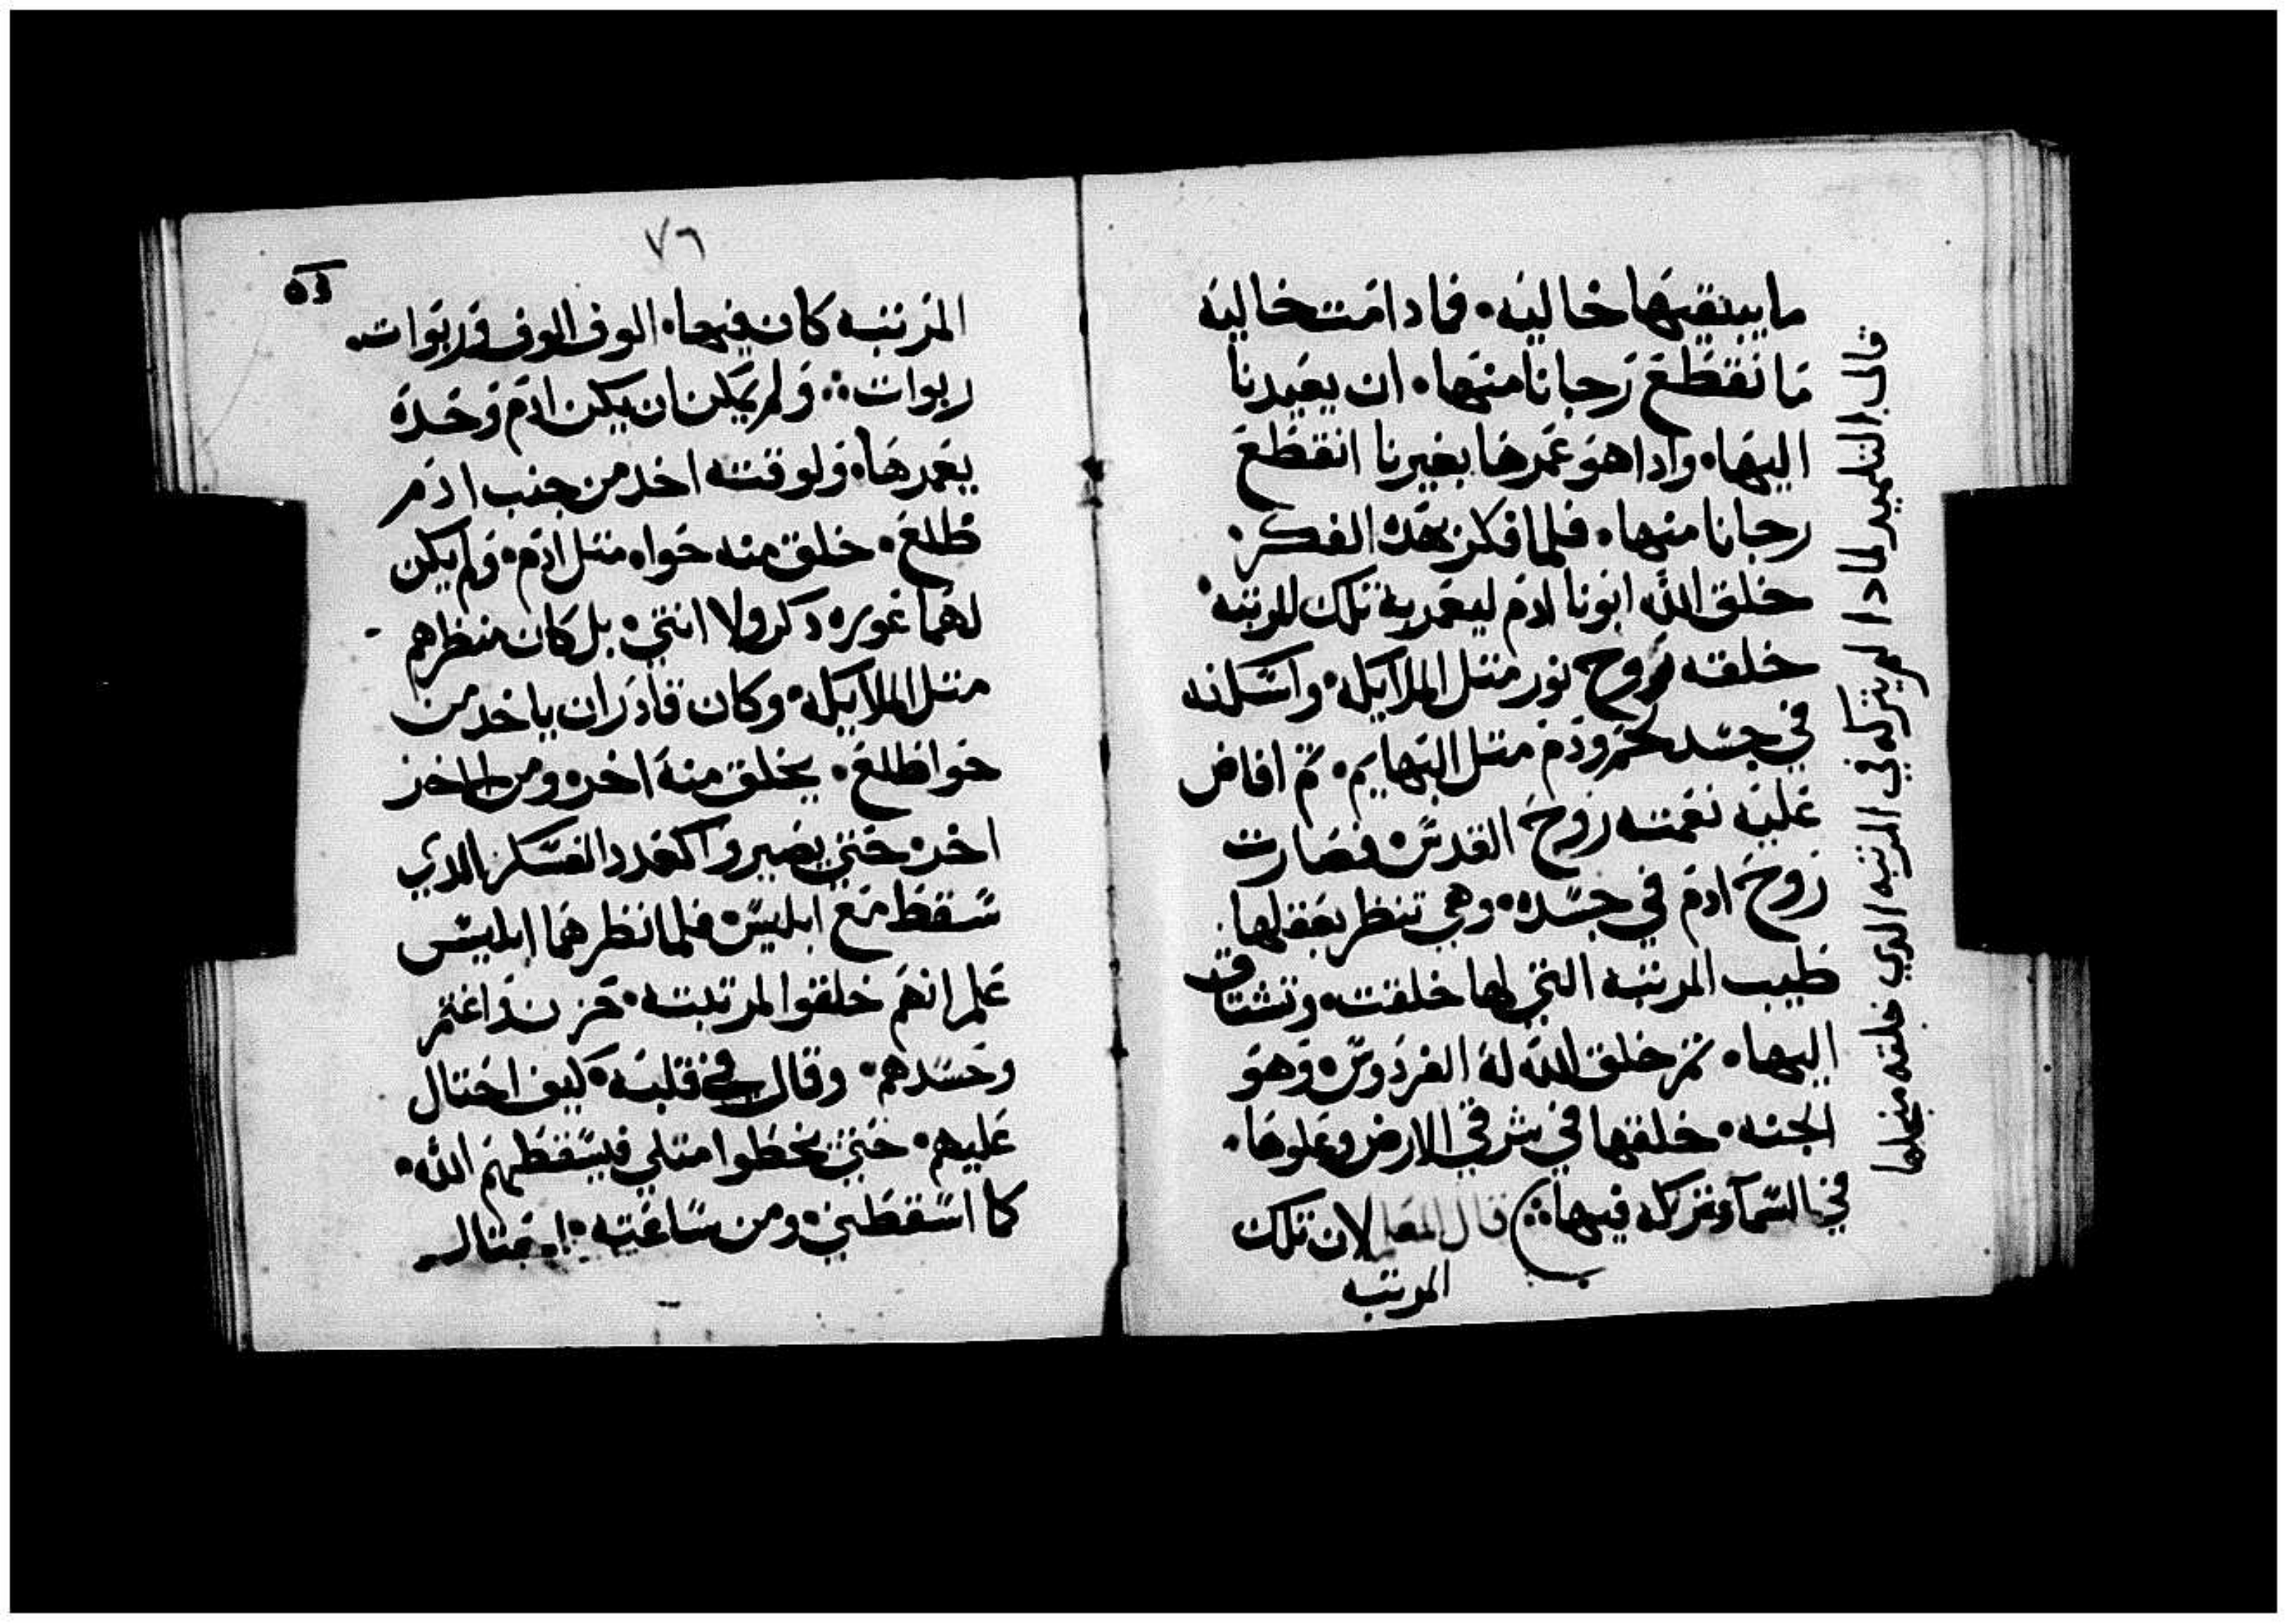 ما يبتقيها خاليه • فما دامت خاليه
ما نقطع رجانا منها • ان يعيدنا
اليها • وادا هو عمرها بغيرنا انقطع
رجانا منها • فلما فكر بهذه الفكر •
خلق الله ابونا ادم ليعمر به تلك المرتبه •
خلقه بروح نور متل الملايكه • واسكنه
في جسد لحم ودم متل البهايم • تم افاض
عليه نعمته روح القدس • فصارت
روح ادم في جسده • وهي تنظر بعقلها
طيب المرتبه التي لها خلقت • وتشتاق
اليها • تم خلق الله له الفردوس • وهو
الجنه • خلقها في شرقي الارض وعلوها •
في السما وتركه فيها ⁘ قال المعلم لان تلك
المرتبه
قال التلميد لمادا لم يتركه في المرتبه الدي خلقه منجلها
٧٦
المرتبه كان فيها • الوف الوف وربوات •
ربوات ⁘ ولم يمكن ان يكن ادم وحده
يعمرها • ولوقته اخد من جنب ادم
ظلع • خلق منه حوا • متل ادم • ولم يكن
لهما عوره دكر ولا انتي • بل كان منظرهم
متل الملايكه • وكان قادر ان ياخد من
حوا ظلع • يخلق منه اخر • ومن الاخر
اخر • حتي يصيروا كعدد العسكر الدي
سقط مع ابليس • فلما نظرهما ابليس
علم انهم خلقوا لمرتبته • حزن واغتم
وحسدهم • وقال في قلبه • كيف احتال
عليهم • حتي يخطوا متلي فيسقطهم الله •
كما اسقطني • ومن ساعته • احتال